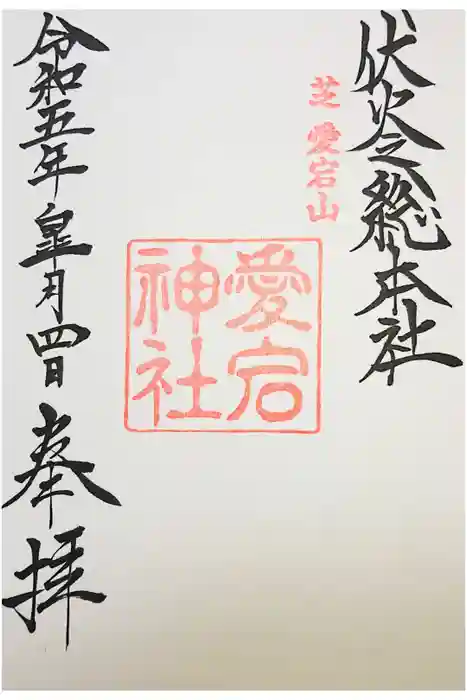 伏火之総本社
芝 愛宕山
愛宕
神社
令和五年 皐月四日 奉拝